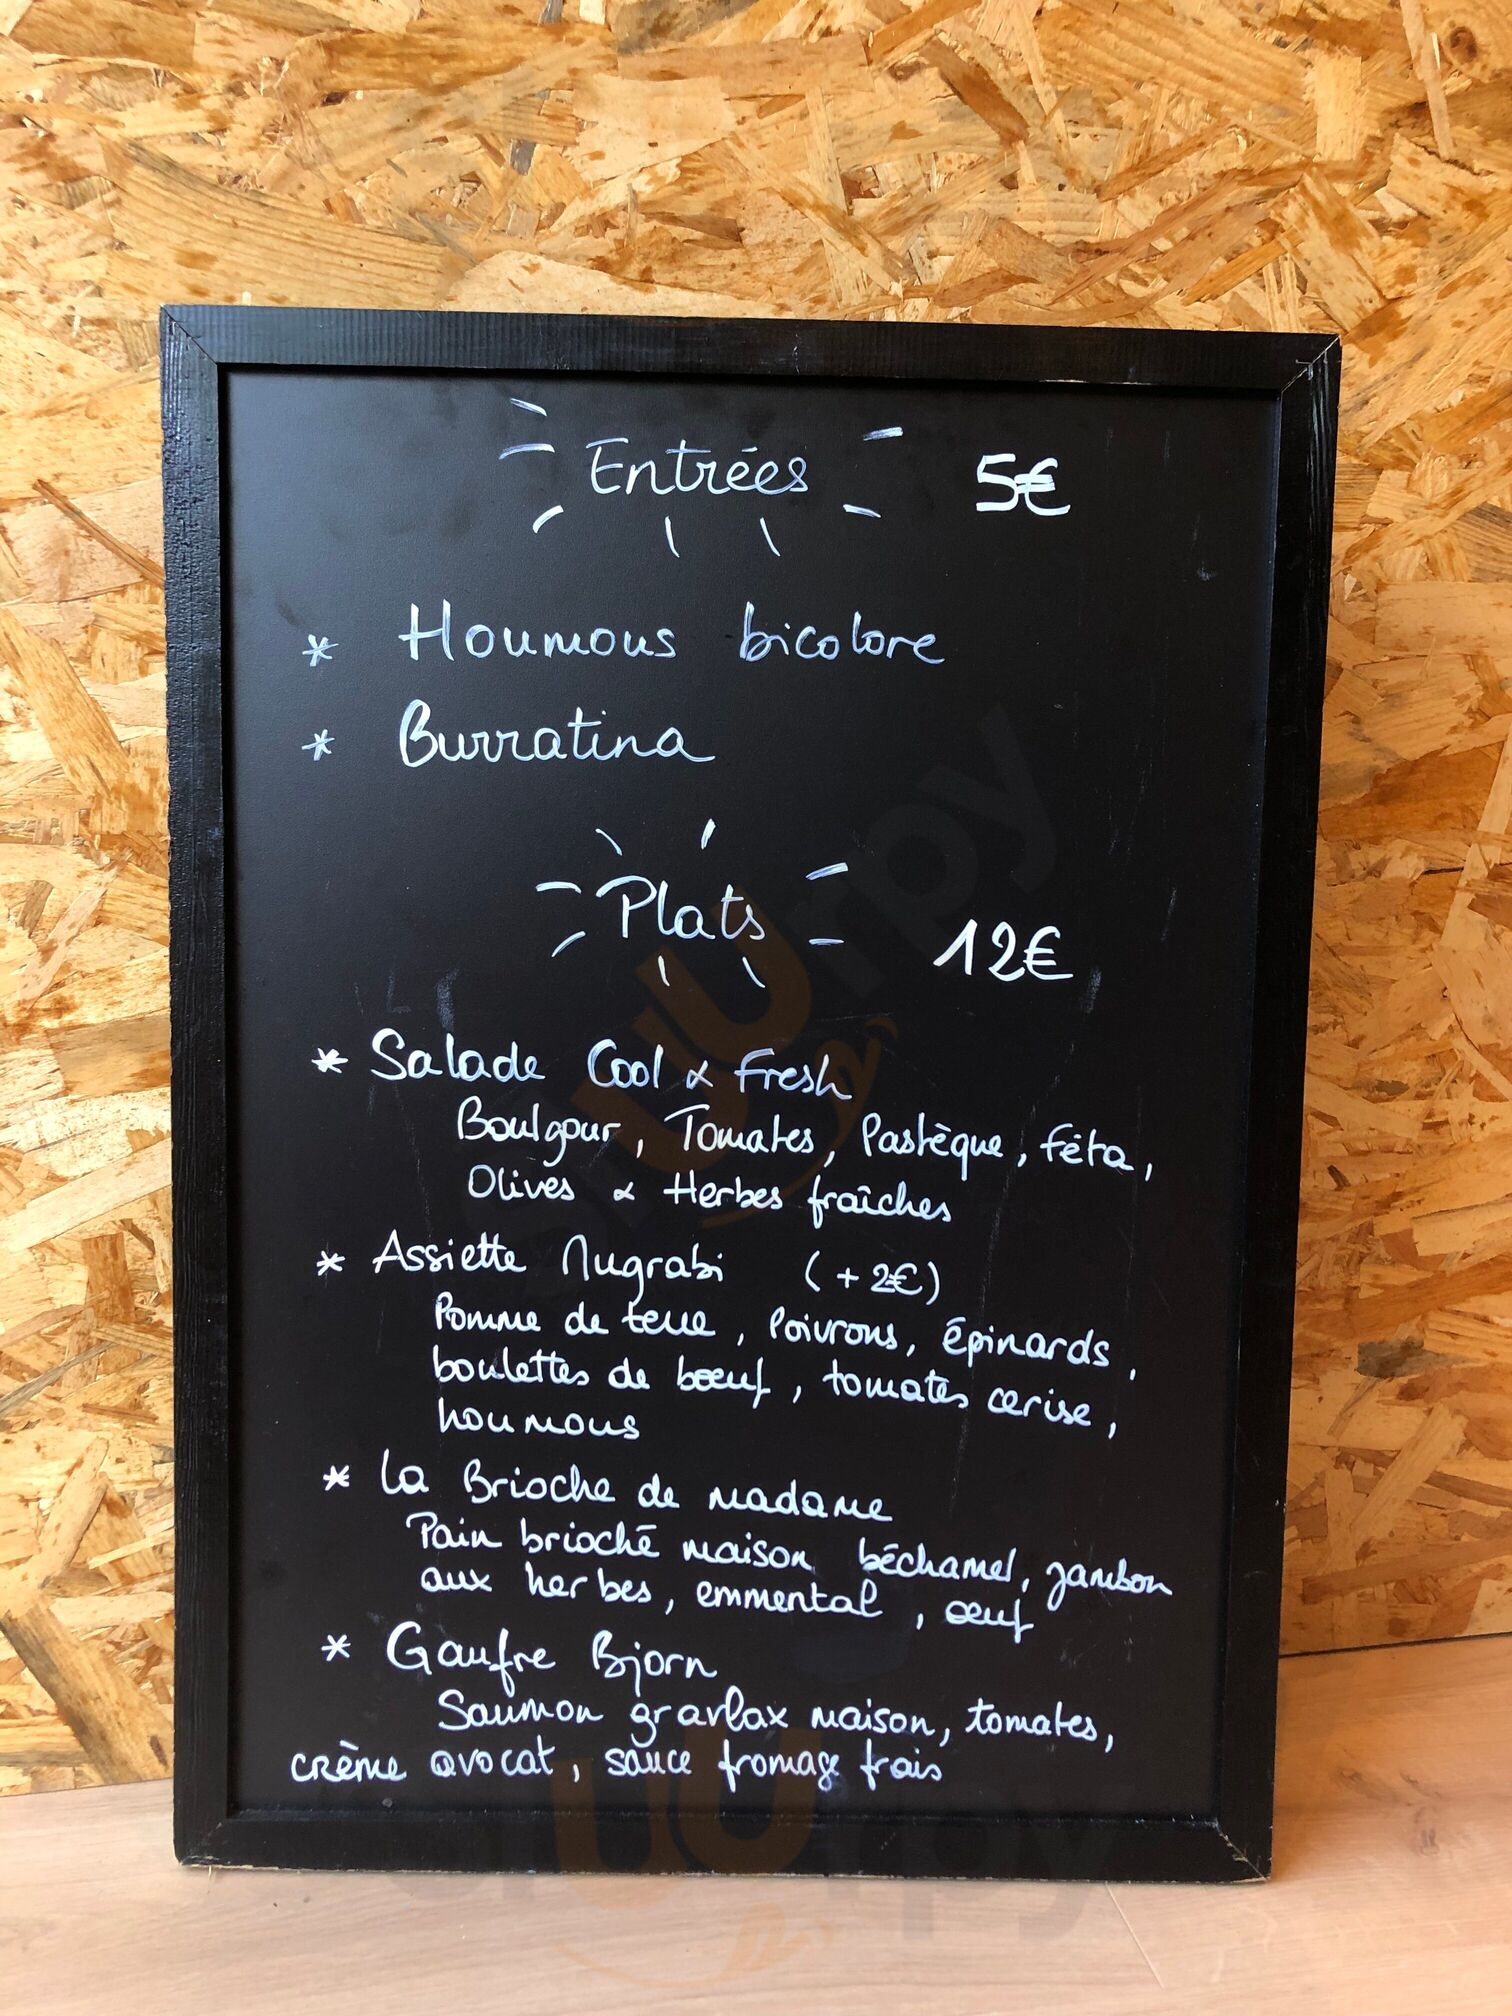 Entrées 5€
* Houmous bicolore
* Burratina
Plats 12€
* Salade Cool & Fresh
Boulgour, Tomates, Pastèque, féta,
Olives & Herbes fraîches
* Assiette Mugrabi (+2€)
Pomme de terre, Poivrons, épinards,
boulettes de bœuf, tomates cerise,
houmous
* La Brioche de madame
Pain brioché maison béchamel, jambon
aux herbes, emmental, œuf
* Gaufre Bjorn
Saumon gravlax maison, tomates,
crème avocat, sauce fromage frais
sluurpy
sluurpy